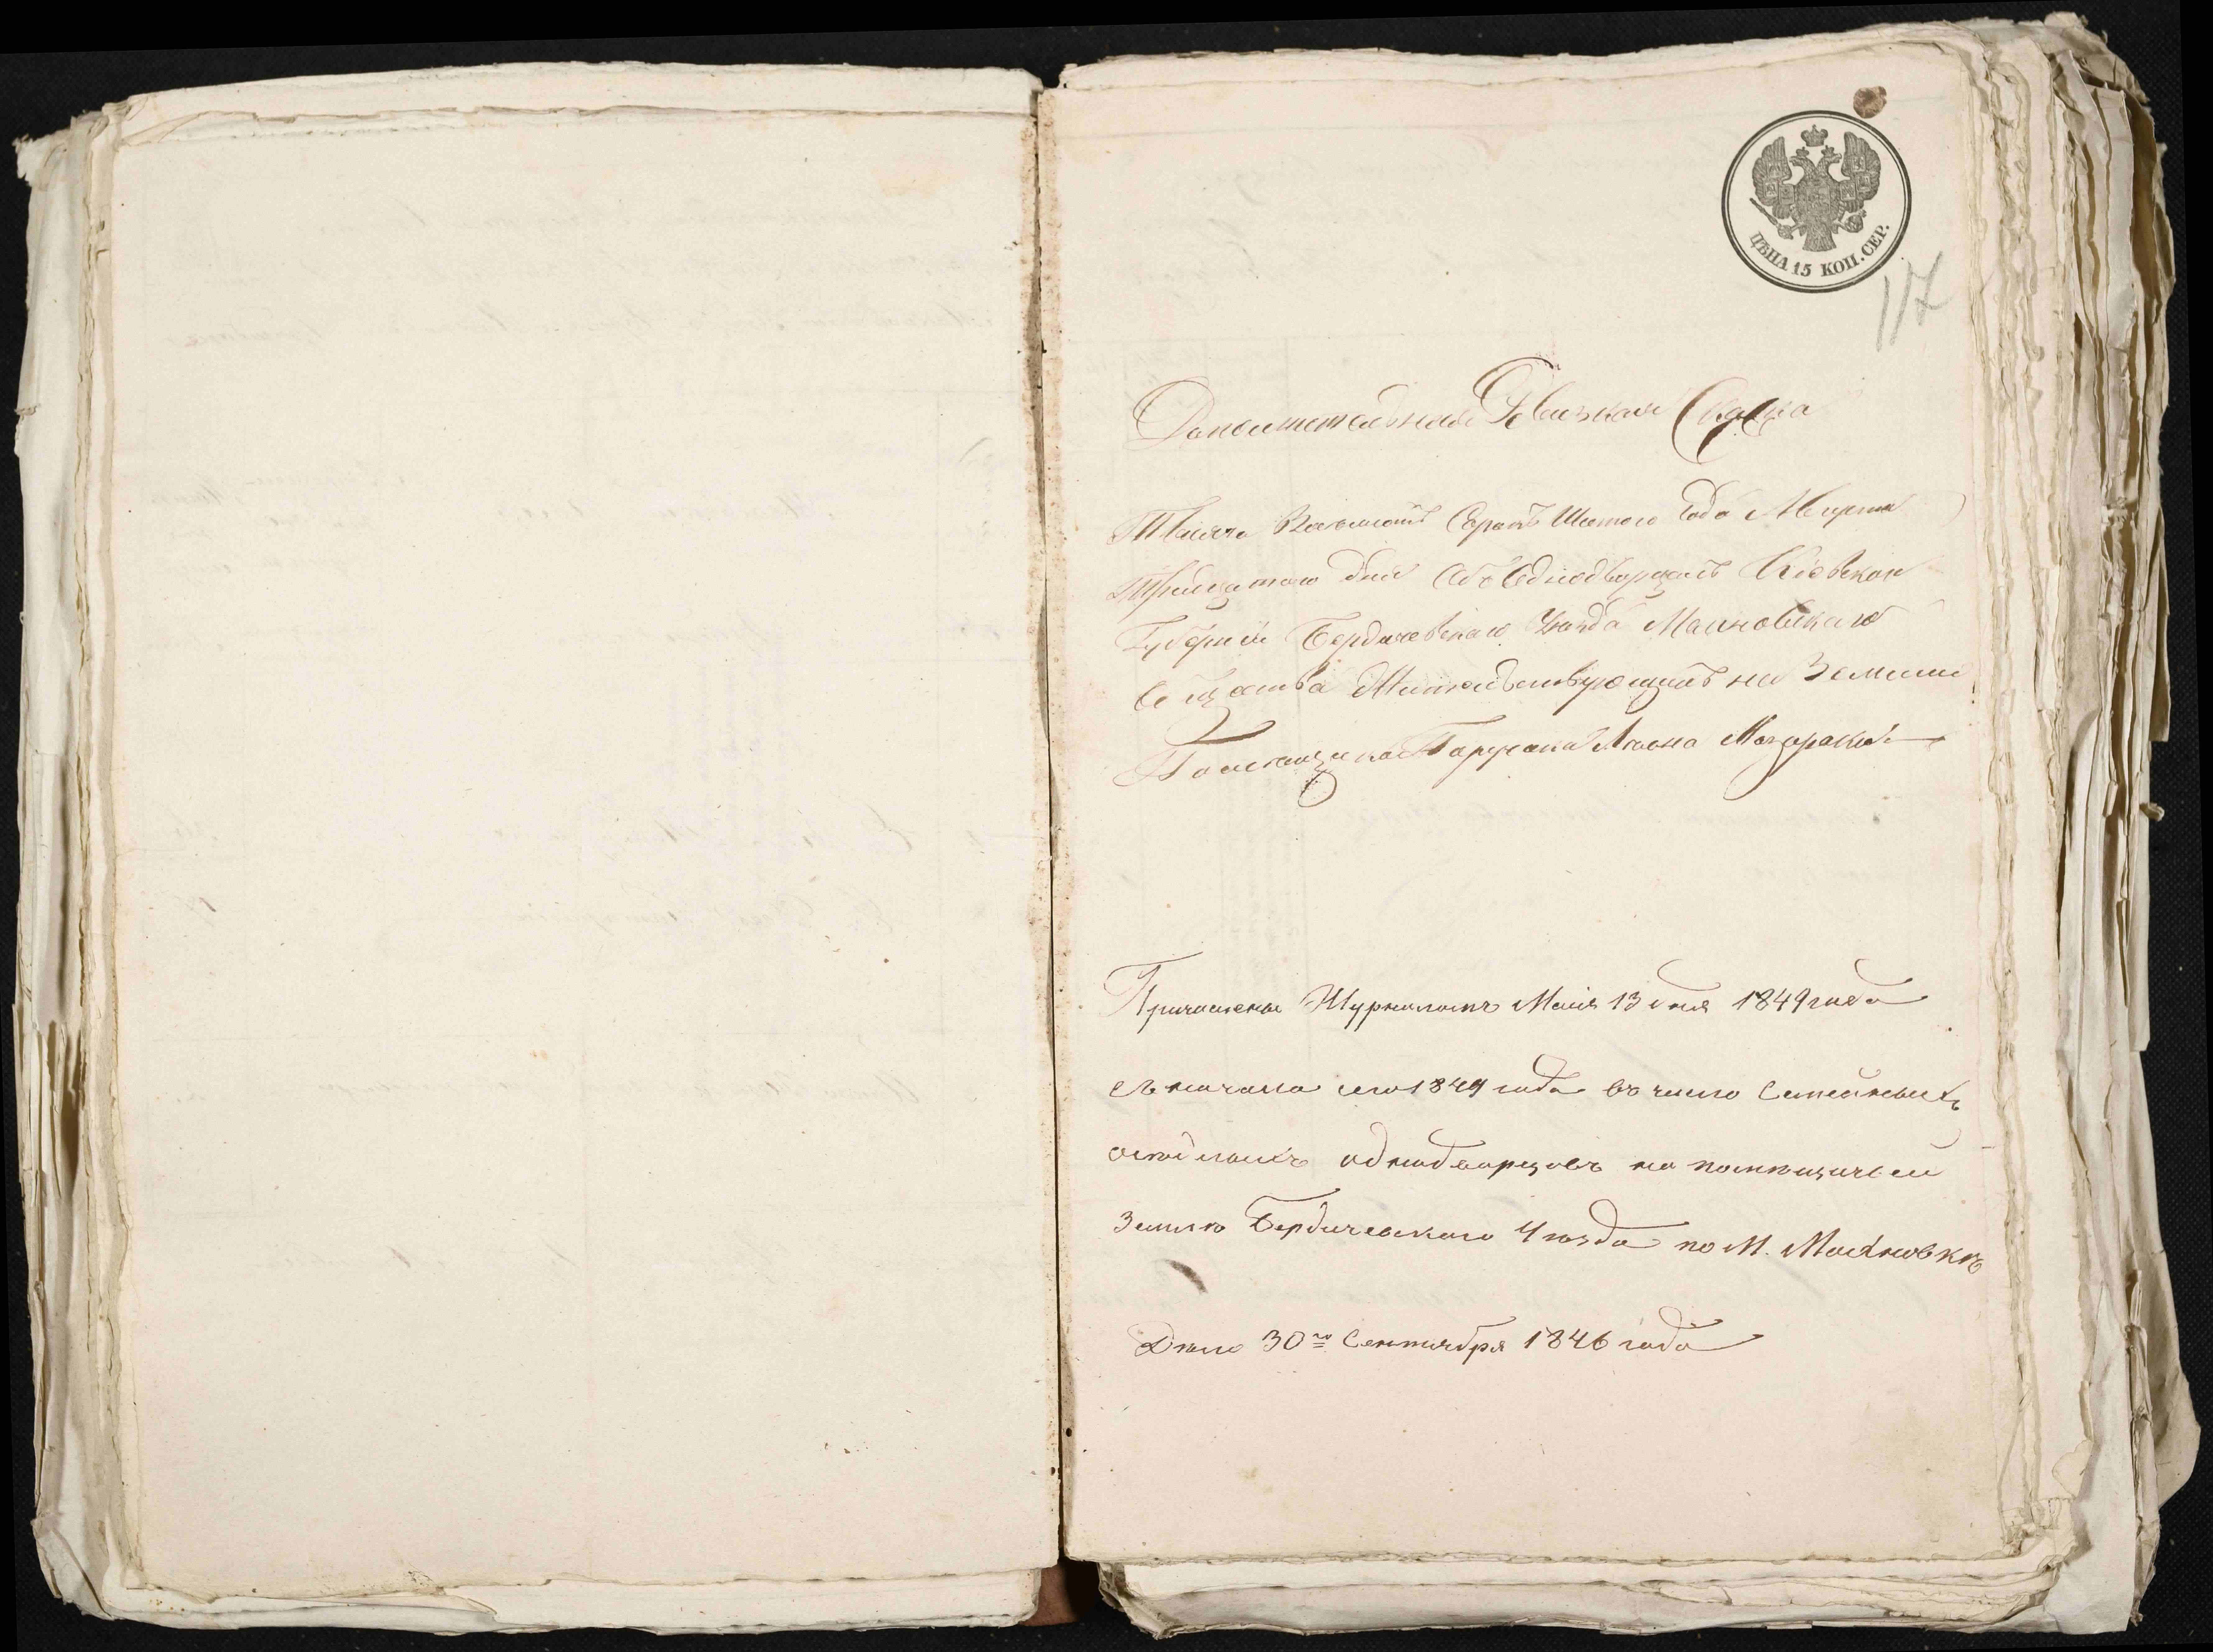 ЦѢНА 15 КОП. СЕР.
117
Дополнительная Ревизкая Скаска
Тысяча Восемсотъ Сорокъ Шестого Года Марта
Тридцатого дня Объ Однодворцахъ Кіевской
Губерніи Бердичевскаго Уѣзда Махновскаго
Общества Жительствующихъ на Землѣ
Помещика Мазараки
Причислены Журналомъ Маія 13 дня 1849 года
съ начала сего 1849 года въ число Семейныхъ
осѣдлыхъ однодворцовъ на помѣщичьей
Землѣ Бердичевского Уѣзда по М. Махновкѣ
Дѣло 30го Сентября 1846 года